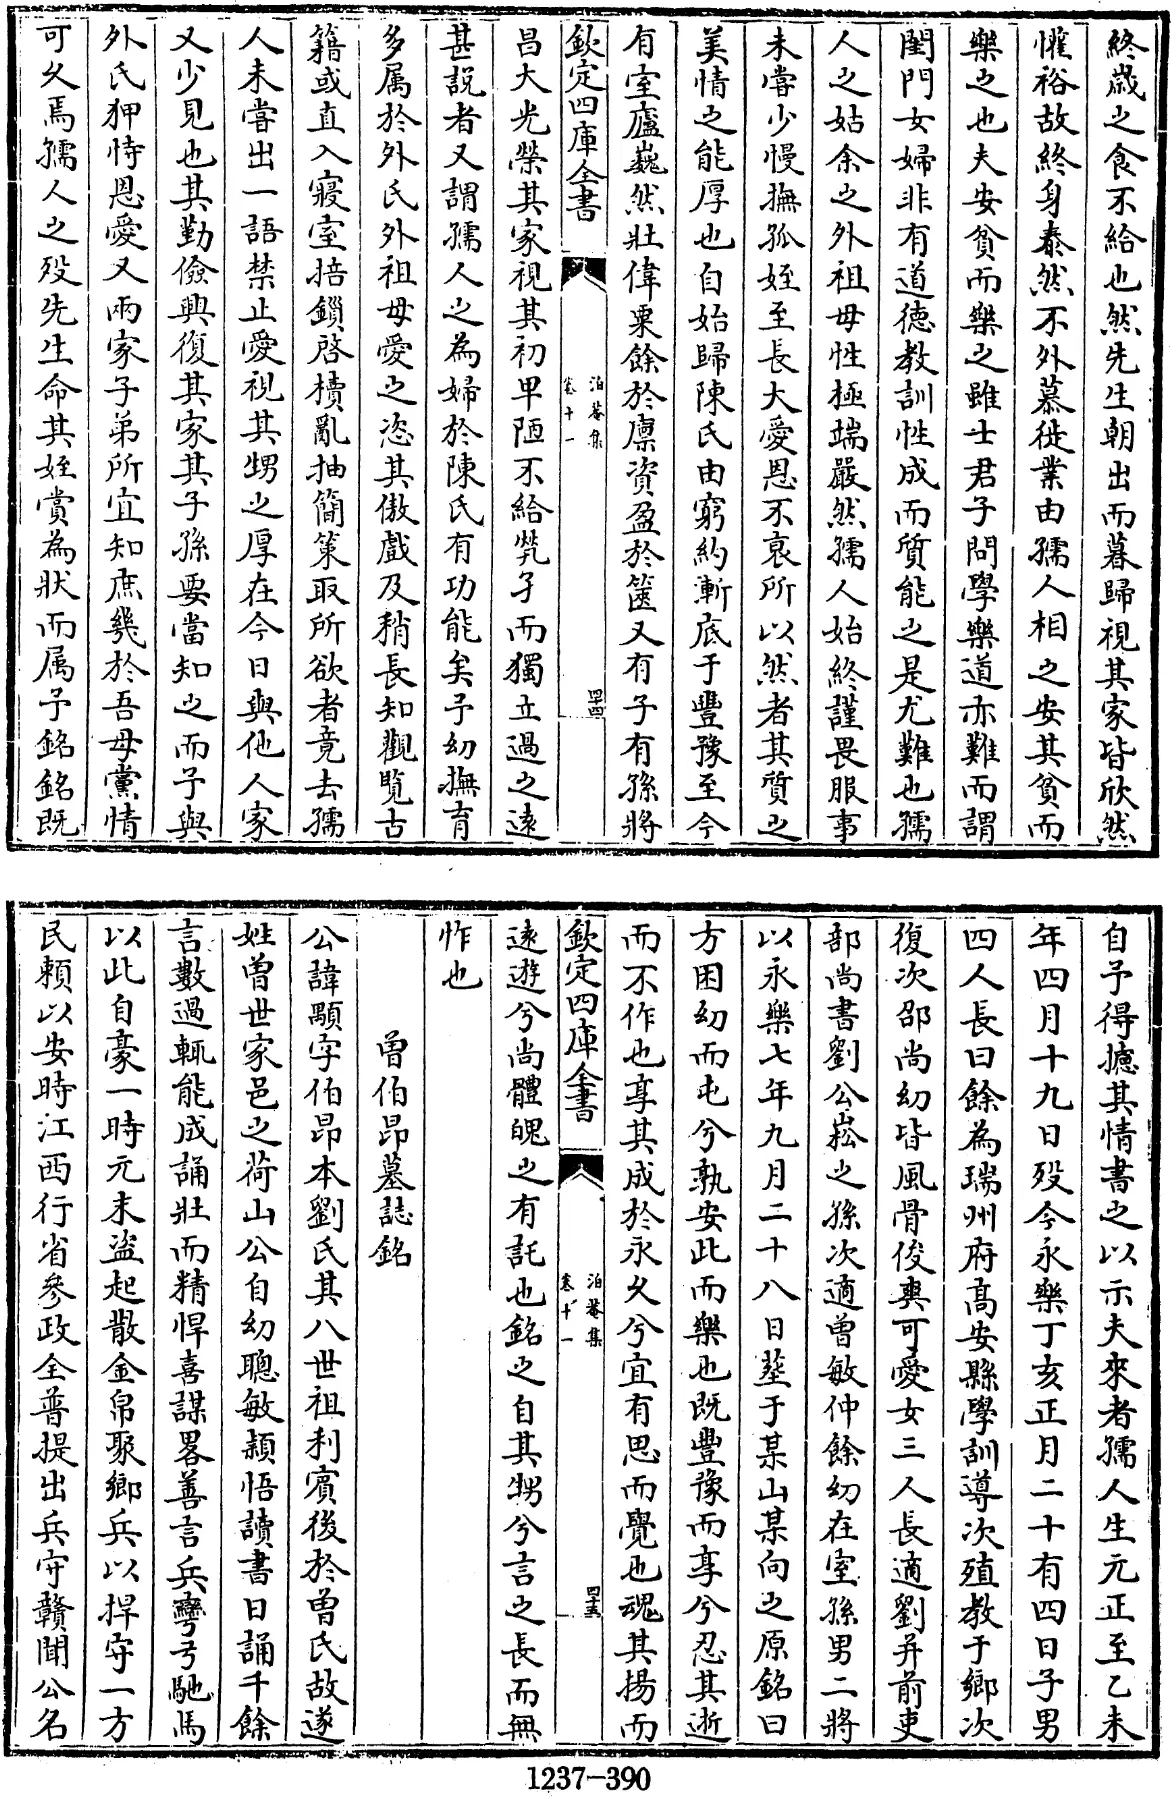 終歲之食不給也然先生朝出而暮歸視其家皆欣然
懽裕故終身泰然不外慕徙業由孺人相之安其貧而
樂之也夫安貧而樂之雖士君子問學樂道亦難而謂
閨門女婦非有道德教訓性成而質能之是尤難也孺
人之姑余之外祖母性極端嚴然孺人始終謹畏服事
未嘗少慢撫孤姪至長大愛恩不衰所以然者其質之
美情之能厚也自始歸陳氏由窮約漸底于豐豫至今
有室廬巍然壯偉粟餘於廩資盈於篋又有子有孫將
欽定四庫全書
泊菴集
卷十一
四十四
昌大光榮其家視其初卑陋不給煢孑而獨立過之遠
甚説者又謂孺人之為婦於陳氏有功能矣予幼撫育
多属於外氏外祖母愛之恣其傲戲及稍長知觀覽古
籍或直入寢室掊鎻啓櫝亂抽簡策取所欲者竟去孺
人未嘗出一語禁止愛視其甥之厚在今日與他人家
又少見也其勤儉興復其家其子孫要當知之而予與
外氏狎恃恩愛又兩家子弟所宜知庶幾於吾母黨情
可乆焉孺人之殁先生命其姪賞為狀而属予銘銘既
自予得攄其情書之以示夫來者孺人生元正至乙未
年四月十九日殁今永樂丁亥正月二十有四日子男
四人長曰餘為瑞州府高安縣學訓導次殖教于鄉次
復次邵尚幼皆風骨俊爽可愛女三人長適劉弁前吏
部尚書劉公崧之孫次適曾敏仲餘幼在室孫男二將
以永樂七年九月二十八日塟于某山某向之原銘曰
方困幼而屯兮孰安此而樂也既豐豫而享兮忍其逝
而不作也享其成於永乆兮宜有思而覺也魂其揚而
欽定四庫全書
泊菴集
卷十一
四十五
遠遊兮尚體魄之有託也銘之自其甥兮言之長而無
怍也
曾伯昂墓誌銘
公諱顒字伯昂本劉氏其八世祖利賓後於曾氏故遂
姓曾世家邑之荷山公自幼聰敏穎悟讀書日誦千餘
言數過輒能成誦壯而精悍喜謀畧善言兵彎弓馳馬
以此自豪一時元末盜起散金帛聚鄉兵以捍守一方
民賴以安時江西行省參政全普提出兵守贛聞公名
1237-390